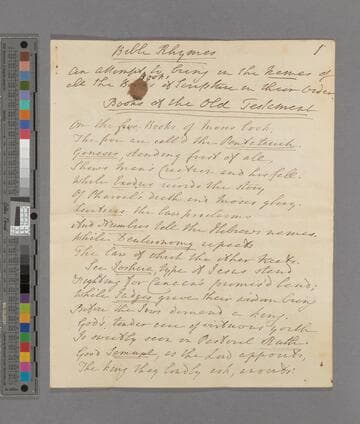 Bible Rhymes
1
An attempt to bring in the Names of
all the Books of Scripture in their Order
Books of the Old Testament
On the five Books of Moses look,
The five are call'd the Pentateuch.
Genesis, standing first of all,
Shews Mans Creation and his fall.
While Exodus records the story
Of Pharoah's death and Moses glory.
the Law proclaims
And Numbers tell the Hebrews names.
While Deuteronomy repeats
The Law of which the other treats.
See Joshua, type of Jesus stand
Fighting for Canaan's promis'd land;
While Judges give their wisdom
Before the Jews demand a King.
God's tender care of virtuous youth
Is sweetly seen in Pastoral Ruth.
Good Samuel, as the Lord appoints,
The King they boldly ask, anoints.